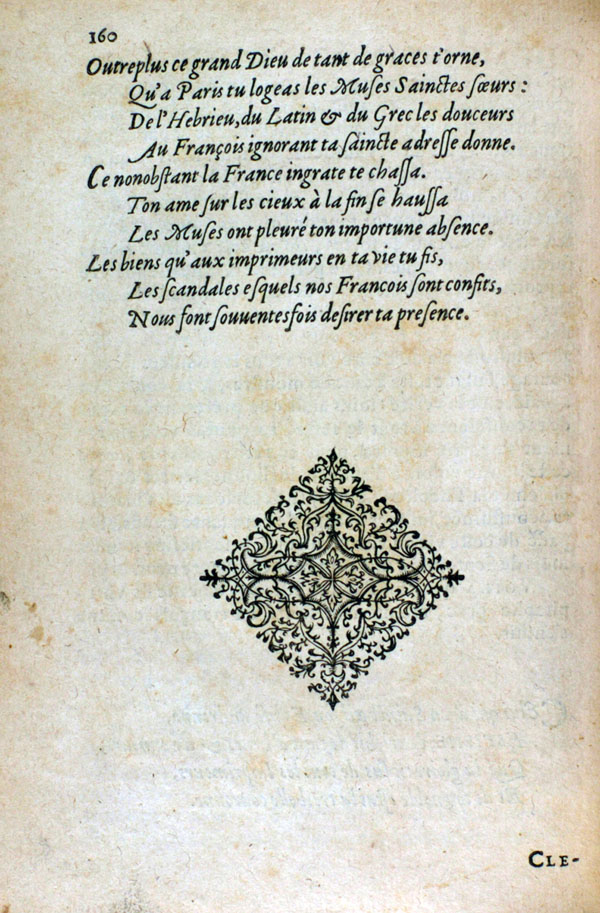 160
Outreplus ce grand Dieu de tant de graces t'orne,
Qu'a Paris tu logeas les Muses Sainctes sœurs :
De l'Hebrieu, du Latin & du Grec les douceurs
Au François ignorant ta saincte adresse donne.
Ce nonobstant la France ingrate te chassa.
Ton ame sur les cieux à la fin se haussa
Les Muses ont pleuré ton importune absence.
Les biens qu'aux imprimeurs en ta vie tu fis,
Les scandales esquels nos Francois sont confits,
Nous font souuentesfois desirer ta presence.
CLE-